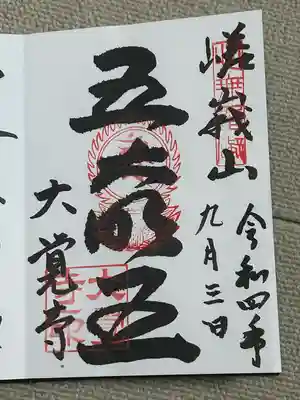 嵯峨山
令和四年
九月三日
五大明王
大覚寺